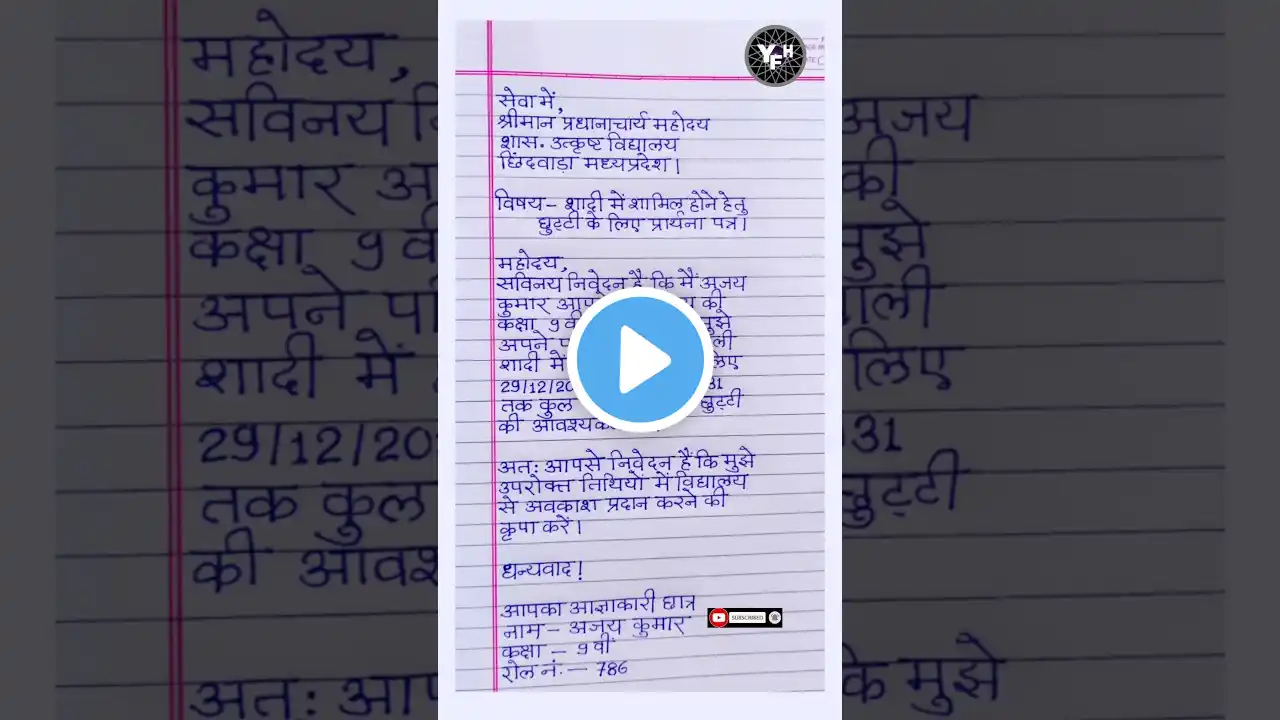 YFH
सेवा में,
श्रीमान प्रधानाचार्य महोदय
शास. उत्कृष्ट विद्यालय
छिंदवाड़ा मध्यप्रदेश।
विषय - शादी में शामिल होने हेतु
छुट्टी के लिए प्रार्थना पत्र।
महोदय,
सविनय निवेदन है कि मैं अजय
कुमार की
कक्षा 9वी
अपने
शादी में
29/12/20 31
तक कुल छुट्टी
की
अत: आपसे निवेदन है कि मुझे
उपरोक्त तिथियों में विद्यालय
से अवकाश प्रदान करने की
कृपा करें।
धन्यवाद!
आपका आज्ञाकारी छात्र
नाम - अजय कुमार
SUBSCRIBED
कक्षा - 9वी
रोल नं. - 786